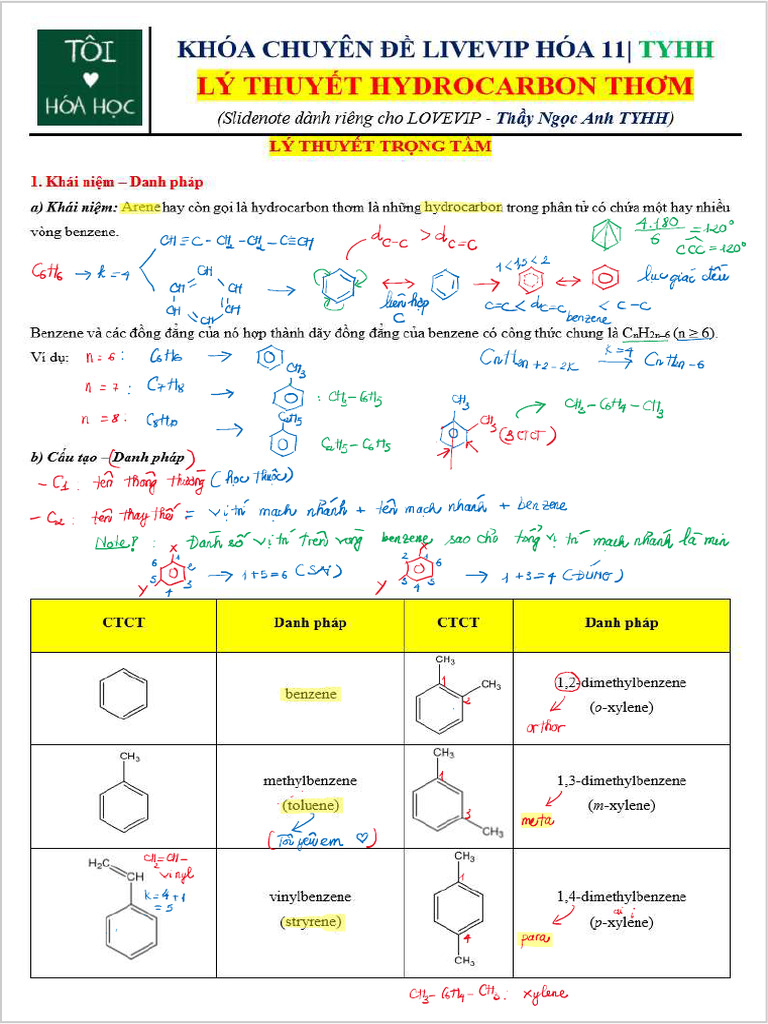 TÔI
♥
HÓA HỌC
KHÓA CHUYÊN ĐỀ LIVEVIP HÓA 11| TYHH
LÝ THUYẾT HYDROCARBON THƠM
(Slidenote dành riêng cho LOVEVIP - Thầy Ngọc Anh TYHH)
LÝ THUYẾT TRỌNG TÂM
1. Khái niệm – Danh pháp
a) Khái niệm: Arene hay còn gọi là hydrocarbon thơm là những hydrocarbon trong phân tử có chứa một hay nhiều
vòng benzene.
CH≡C-CH2-CH2-C≡CH
dC-C > dC=C
4.180/6 = 120°
CCC = 120°
C6H6 → k=4
CH CH CH CH CH CH
liên hợp
C
1<1,5<2
lục giác đều
C=C < dC=C benzene < C-C
Benzene và các đồng đẳng của nó hợp thành dãy đồng đẳng của benzene có công thức chung là CnH2n–6 (n ≥ 6).
Ví dụ: n=6: C6H6 →
CnH2n+2-2k k=4 → CnH2n-6
n=7: C7H8 → CH3 : CH3-C6H5
n=8: C8H10 → C2H5 C2H5-C6H5
CH3 CH3 (3CTCT) → CH3-C6H4-CH3
b) Cấu tạo – (Danh pháp)
- C1: tên thông thường (học thuộc)
- C2: tên thay thế = vị trí mạch nhánh + tên mạch nhánh + benzene
Note!: Đánh số vị trí trên vòng benzene sao cho tổng vị trí mạch nhánh là min
X Y 1 2 3 4 5 6 → 1+5=6 (SAI)
X Y 1 2 3 4 5 6 → 1+3=4 (ĐÚNG)
CTCT Danh pháp CTCT Danh pháp
benzene
CH3 CH3 1 2
1,2-dimethylbenzene
(o-xylene)
orthor
CH3
methylbenzene
(toluene)
(Tôi yêu em ♡)
CH3 CH3 1 3
1,3-dimethylbenzene
(m-xylene)
meta
H2C CH
CH2=CH-
vinyl
k=4+1
=5
vinylbenzene
(stryrene)
CH3 CH3 1 4
1,4-dimethylbenzene
(p-xylene)
ai i
para
CH3-C6H4-CH3: xylene